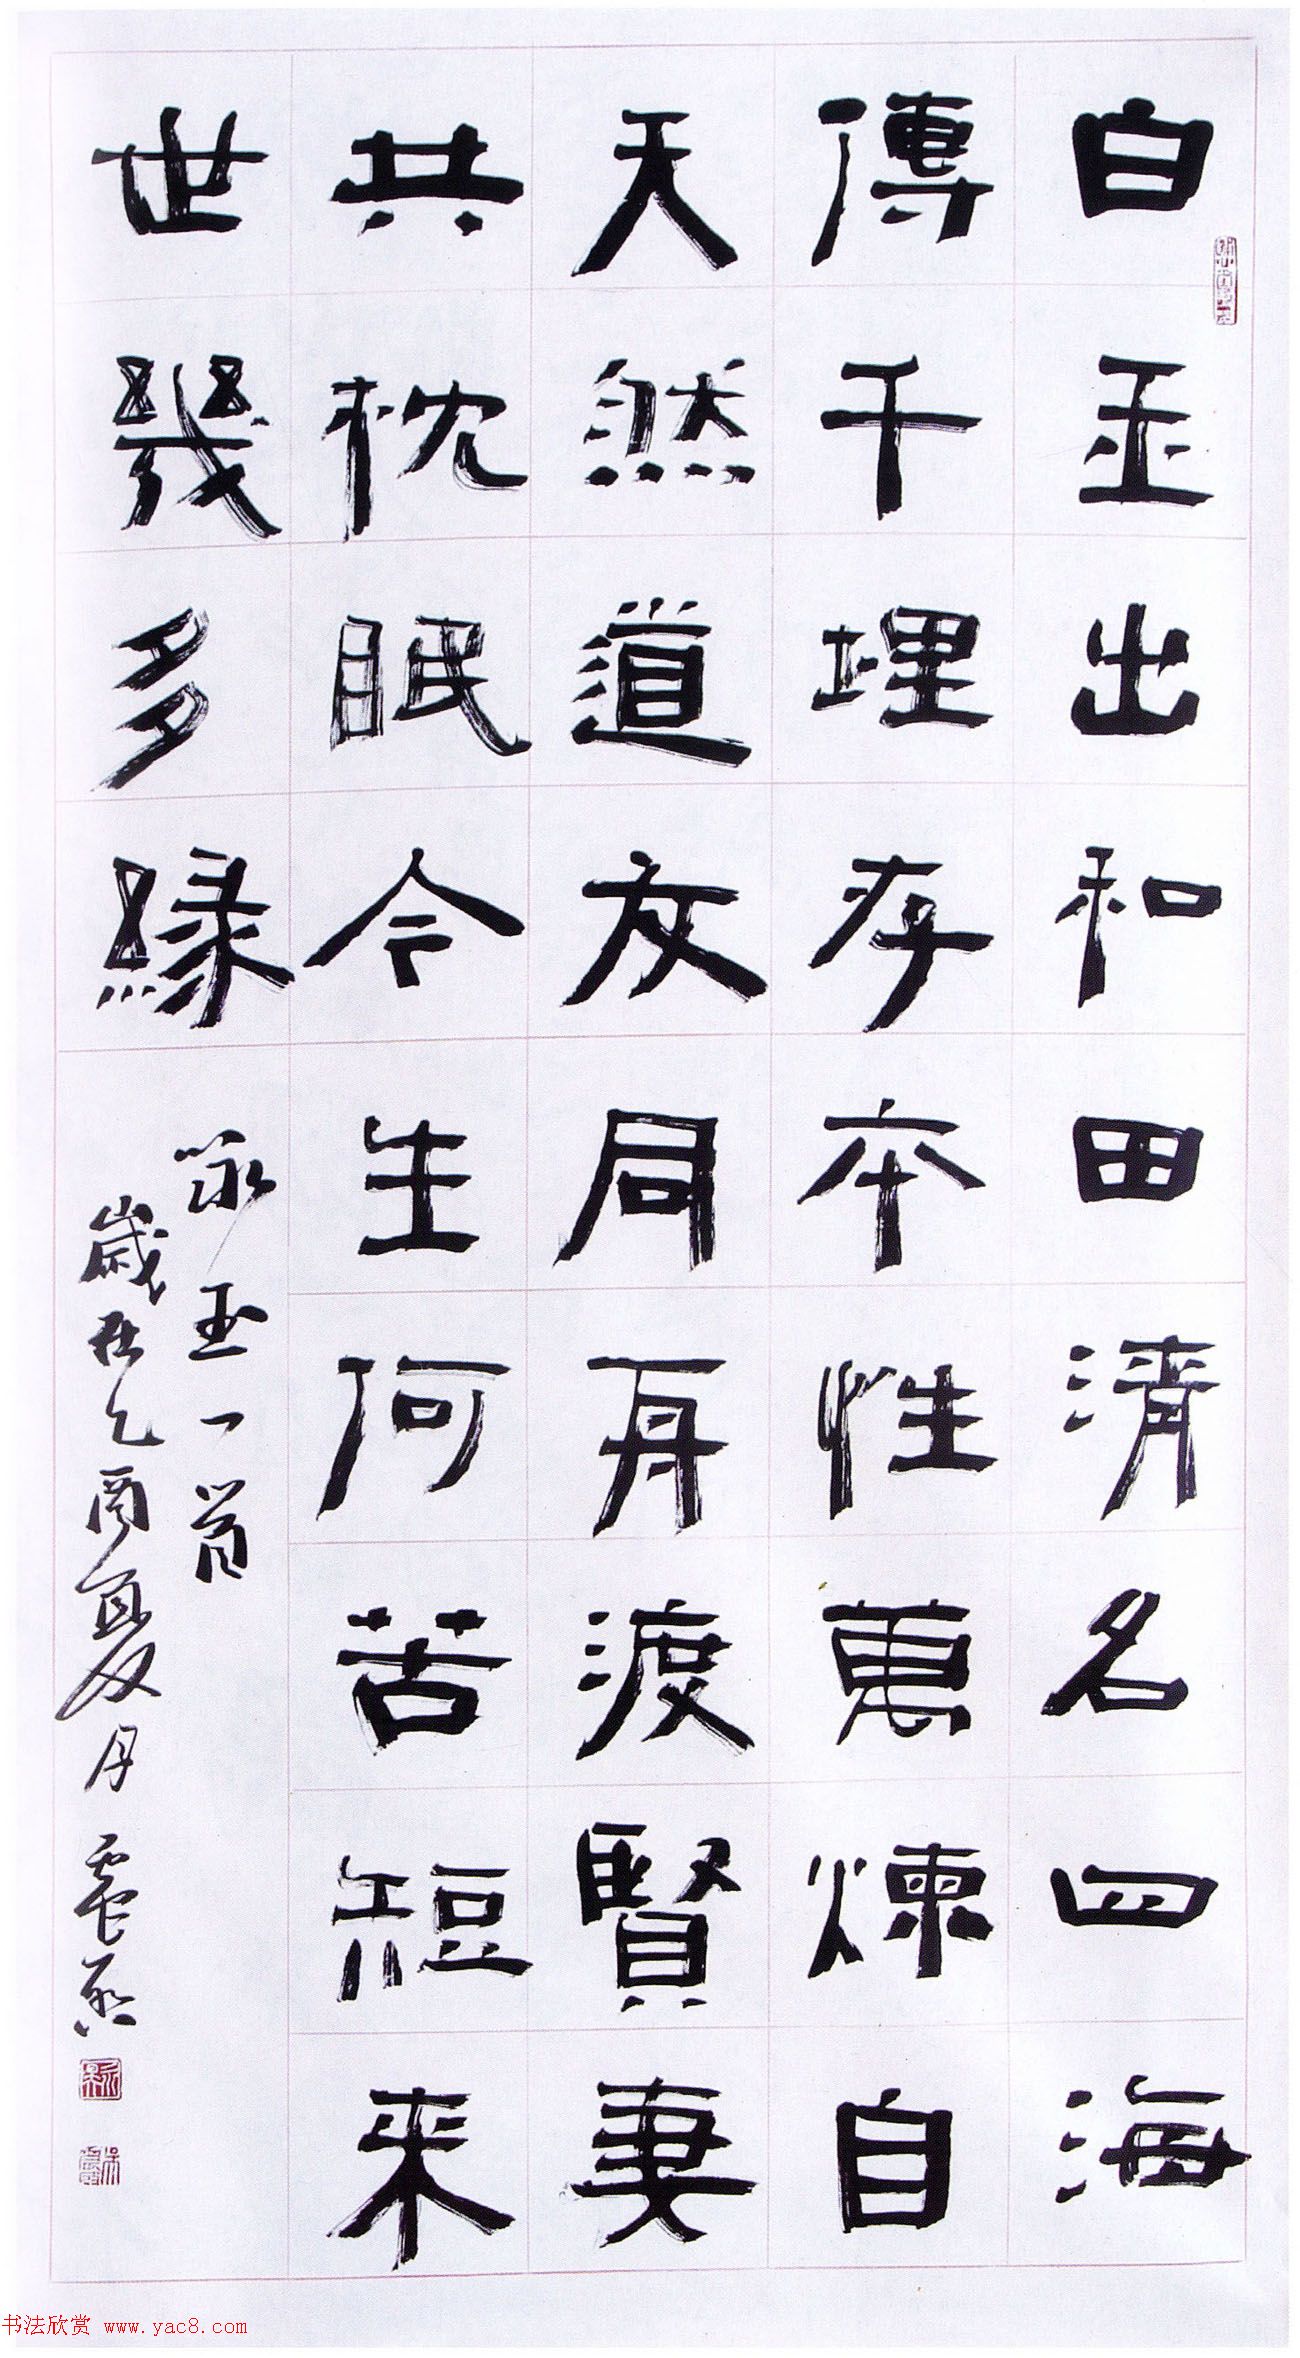 白玉出和田清名四海
傳千埋存本性萬煉自
天然道友同再渡賢妻
共枕眠今生何苦短來
世幾多緣
詠玉一首
歲在乙酉夏月
书法欣赏 www.yac8.com